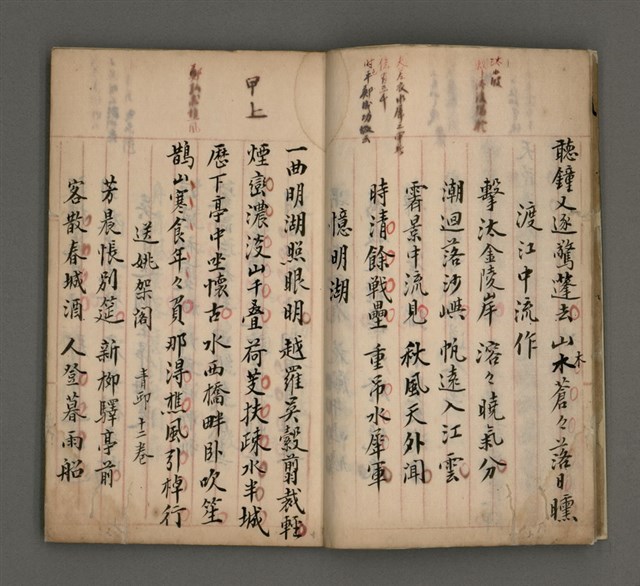 聽鐘又逐驚蓬去 山木蒼々落日曛
木
渡江中流作
擊汰金陵岸 溶々曉氣分
潮迴落沙嶼 帆遠入江雲
霽景中流見 秋風天外聞
時清餘戰壘 重吊水犀軍
憶明湖
甲上
一曲明湖照眼明 越羅吳縠剪裁輕
煙巒濃淡山千叠 荷芰扶疎水半城
歷下亭中坐懷古 水西橋畔卧吹笙
鵲山寒食年々負 那得樵風引棹行
送姚架閣 青邱十二卷
芳晨悵別筵 新柳驛亭前
客散春城酒 人登暮雨船